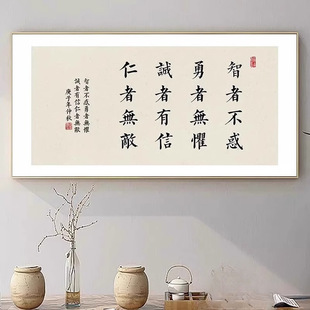 智者不惑
勇者無懼
誠者有信
仁者無敵
智者不惑勇者無懼
誠者有信仁者無敵
庚子年仲秋